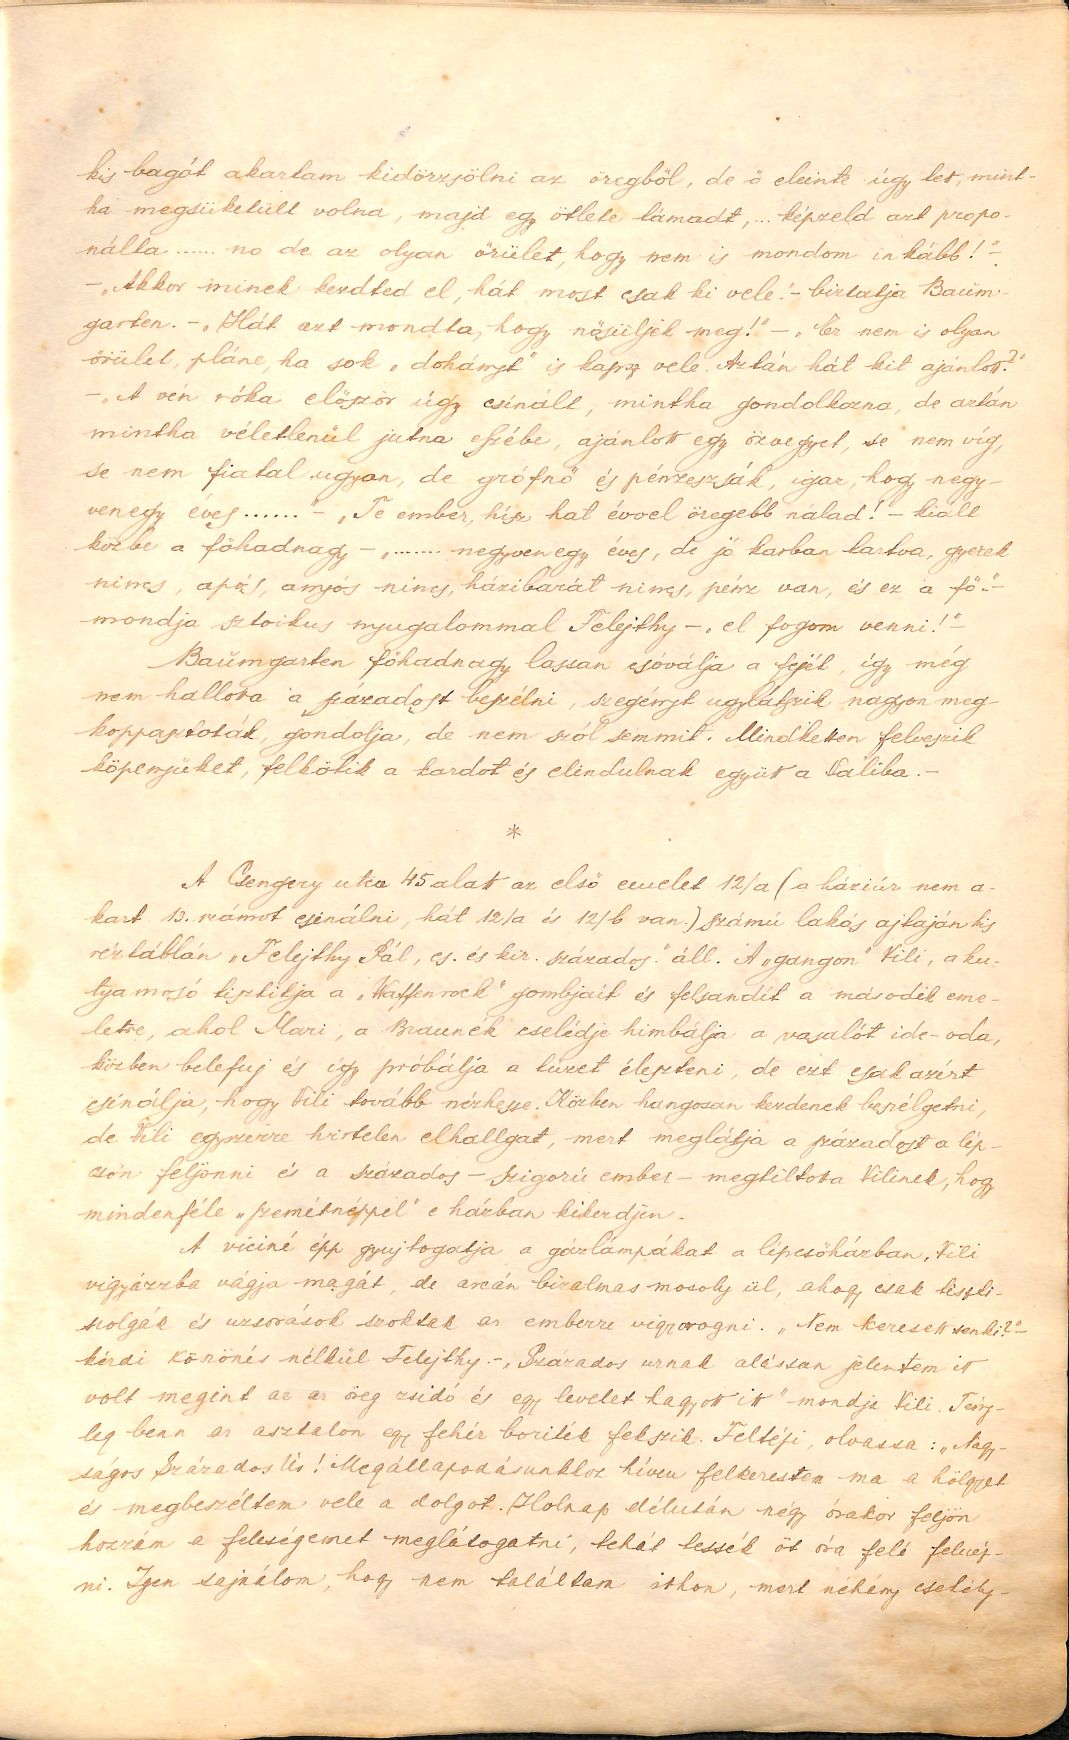 kis bagót akartam kidörzsölni az öregből, de ő eleinte úgy tett, mint-
ha megsüketült volna, majd egy ötlete támadt, ... képzeld azt propo-
nálta ...... no de az olyan őrület, hogy nem is mondom inkább!"-
-„Akkor minek kezdted el, hát most csak ki vele."- biztatja Baum-
garten. - „Hát azt mondta, hogy nősüljek meg!" - „Ez nem is olyan
őrület, pláne, ha sok „dohányt" is kapsz vele. Aztán hát kit ajánlott?"
-„A vén róka először úgy csinált, mintha gondolkozna, de aztán
mintha véletlenül jutna eszébe, ajánlott egy özvegyet, se nem víg,
se nem fiatal ugyan, de grófnő és pénzeszsák, igaz, hogy negy-
venegy éves ......" - „Te ember, hisz hat évvel öregebb nálad!" - kiált
közbe a főhadnagy - „....... negyvenegy éves, de jó karban tartva, gyerek
nincs, após, anyós nincs, házibarát nincs, pénz van, és ez a fő."-
mondja sztoikus nyugalommal Felejthy - „el fogom venni!"-
Baumgarten főhadnagy lassan csóválja a fejét, így még
nem hallotta a századost beszélni, szegényt ugylátszik nagyon meg-
koppasztották, gondolja, de nem szól semmit. Mindketten felveszik
köpenyüket, felkötik a kardot és elindulnak együtt a Váliba. -
*
A Csengery utca 45 alatt az első emelet 12/a (a háziúr nem a-
kart 13. számot csinálni, hát 12/a és 12/b van.) számú lakás ajtaján kis
réztáblán „Felejthy Pál, cs. és kir. százados." áll. A „gangon" Vili, a ku-
tyamosó tisztitja a „Waffenrock" gombjait és felsandít a második eme-
letre, ahol Mari, a Braunék cselédje himbálja a vasalót ide-oda,
közben belefuj és így próbálja a tüzet éleszteni, de ezt csak azért
csinálja, hogy Vili tovább nézhesse. Közben hangosan kezdenek beszélgetni,
de Vili egyszerre hirtelen elhallgat, mert meglátja a századost a lép-
csőn feljönni és a százados - szigorú ember - megtiltotta Vilinek, hogy
mindenféle „szemétnéppel" e házban kikezdjen.
A viciné épp gyujtogatja a gázlámpákat a lépcsőházban, Vili
vigyázzba vágja magát, de arcán bizalmas mosoly ül, ahogy csak tiszti-
szolgák és uzsorások szoktak az emberre vigyorogni. „Nem keresett senki?"-
kérdi köszönés nélkül Felejthy. - „Százados urnak alássan jelentem itt
volt megint az az öreg zsidó és egy levelet hagyott itt" mondja Vili. Tény-
leg benn az asztalon egy fehér boriték fekszik. Feltépi, olvassa: „Nagy-
ságos Százados Úr! Megállapodásunkhoz híven felkerestem ma a hölgyet
és megbeszéltem vele a dolgot. Holnap délután négy órakor feljön
hozzám a feleségemet meglátogatni, tehát tessék öt óra felé felnéz-
ni. Igen sajnálom, hogy nem találtam itthon, mert néhány csekély-